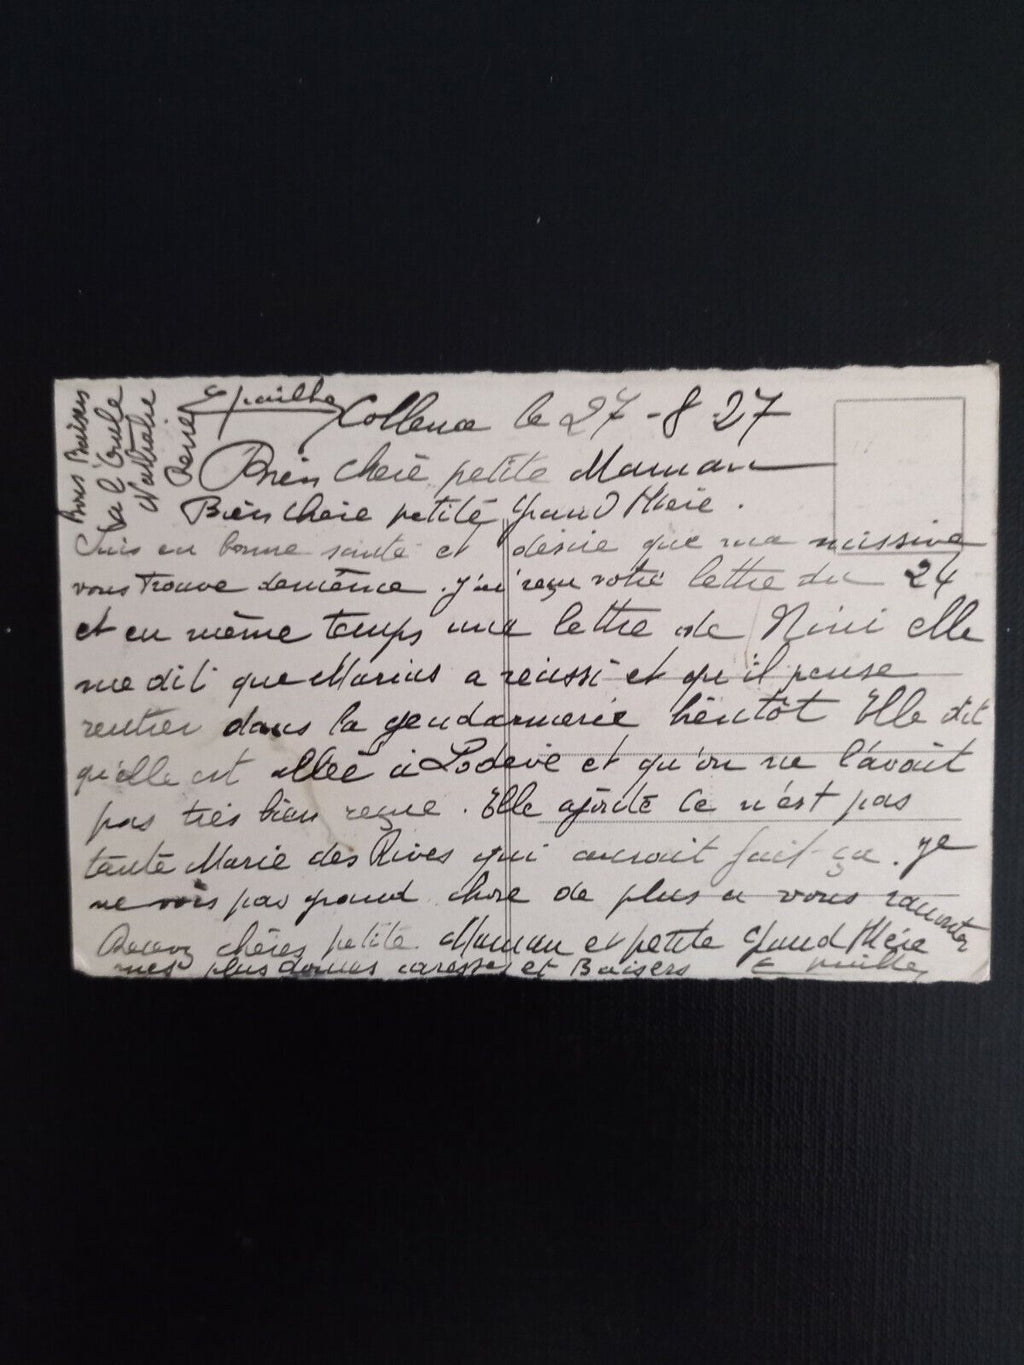 Bons Baisers
à l'Oncle
Nathalie
René
E pailhe
le 27-8 27
Bien cheré petite Maman
Bien cheie petité grand Mère.
Suis en bonne santé et désire que ma missive
vous Trouve demême. j'ai reçu votre lettre du 24
et en même temps une lettre de Nini elle
me dit que Marius a réussi et qu'il pense
rentrer dans la gendarmerie bientôt Elle dit
qu'elle est allée à Lodève et qu'on ne l'avait
pas très bien reçue. Elle ajoute Ce n'est pas
tante Marie des Rives qui aurait fait ça. je
ne vois pas grand chose de plus a vous raconter
Recevez chères petite Maman et petite grand Mère
mes plus douces caresses et Baisers E pailhe